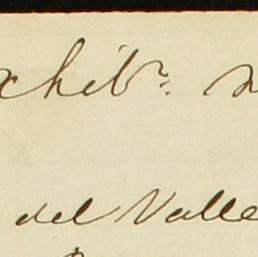 xhibr.
del Valle